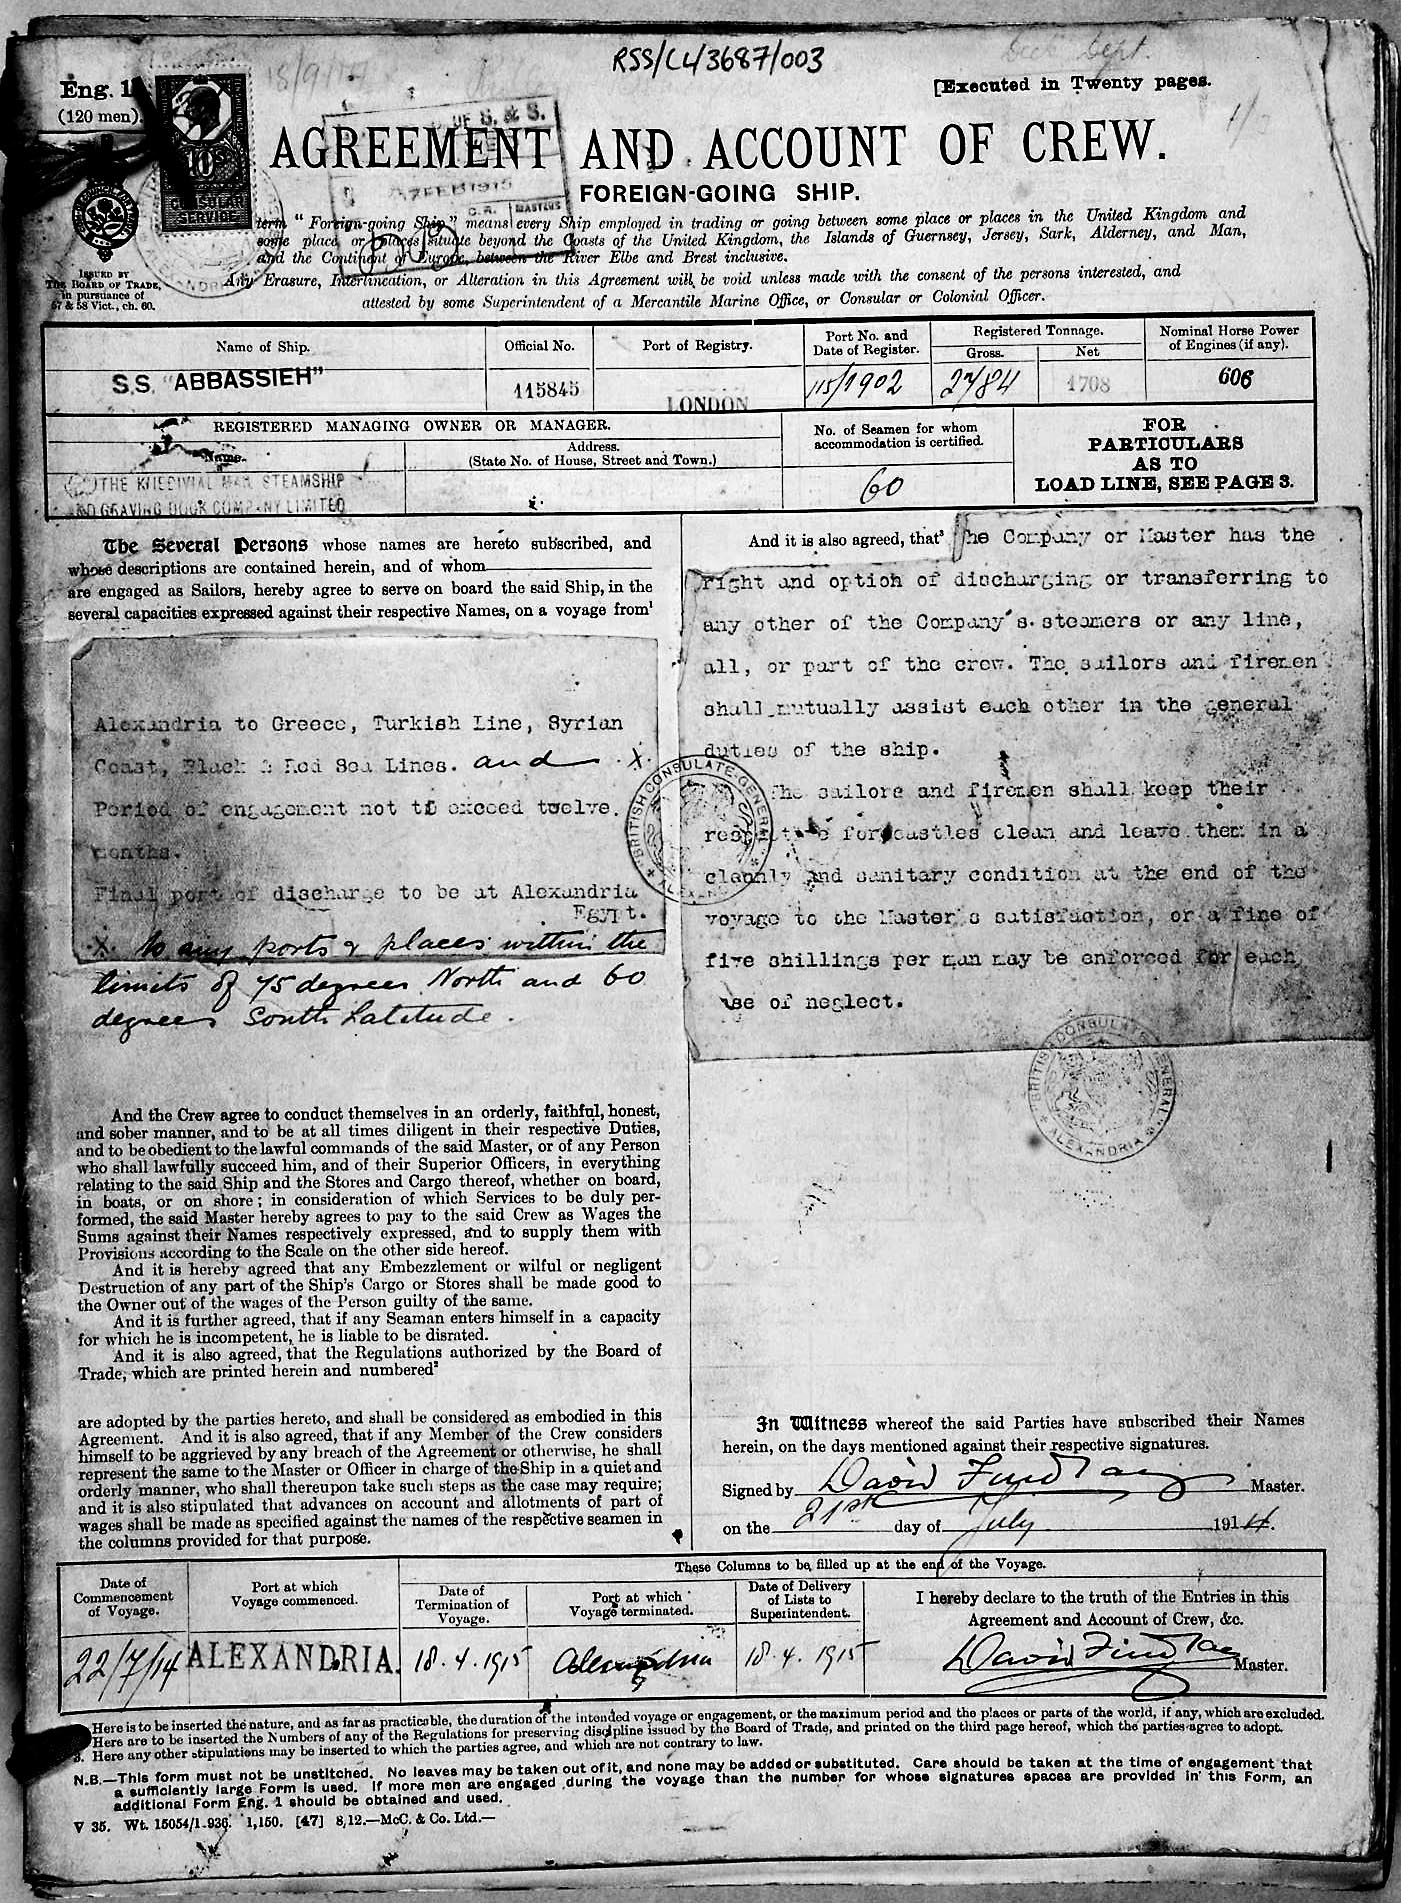 RSS/CL/3687/003
Deck Dept.
Eng. 1
(120 men).
[Executed in Twenty pages.
18/9/
1/2
10s
CONSULAR
SERVICE
OF S. & S.
7 FEB 1915
C.R. MASTERS
AGREEMENT AND ACCOUNT OF CREW.
FOREIGN-GOING SHIP.
term "Foreign-going Ship" means every Ship employed in trading or going between some place or places in the United Kingdom and
some place or places situate beyond the Coasts of the United Kingdom, the Islands of Guernsey, Jersey, Sark, Alderney, and Man,
and the Continent of Europe, between the River Elbe and Brest inclusive.
Any Erasure, Interlineation, or Alteration in this Agreement will be void unless made with the consent of the persons interested, and
attested by some Superintendent of a Mercantile Marine Office, or Consular or Colonial Officer.
ISSUED BY
THE BOARD OF TRADE,
in pursuance of
57 & 58 Vict., ch. 60.
Name of Ship. Official No. Port of Registry. Port No. and Date of Register. Registered Tonnage. Gross. Net Nominal Horse Power of Engines (if any).
S.S. "ABBASSIEH" 115845 LONDON 115/1902 2784 1708 606
REGISTERED MANAGING OWNER OR MANAGER.
Name. Address.
(State No. of House, Street and Town.)
No. of Seamen for whom
accommodation is certified.
60
FOR
PARTICULARS
AS TO
LOAD LINE, SEE PAGE 3.
THE KHEDIVIAL MAIL STEAMSHIP
AND GRAVING DOCK COMPANY LIMITED
The Several Persons whose names are hereto subscribed, and
whose descriptions are contained herein, and of whom
are engaged as Sailors, hereby agree to serve on board the said Ship, in the
several capacities expressed against their respective Names, on a voyage from¹
Alexandria to Greece, Turkish Line, Syrian
Coast, Black & Red Sea Lines. and X.
Period of engagement not to exceed twelve
months.
Final port of discharge to be at Alexandria
Egypt.
X. to any ports & places within the
limits of 75 degrees North and 60
degrees South Latitude.
And the Crew agree to conduct themselves in an orderly, faithful, honest,
and sober manner, and to be at all times diligent in their respective Duties,
and to be obedient to the lawful commands of the said Master, or of any Person
who shall lawfully succeed him, and of their Superior Officers, in everything
relating to the said Ship and the Stores and Cargo thereof, whether on board,
in boats, or on shore; in consideration of which Services to be duly per-
formed, the said Master hereby agrees to pay to the said Crew as Wages the
Sums against their Names respectively expressed, and to supply them with
Provisions according to the Scale on the other side hereof.
And it is hereby agreed that any Embezzlement or wilful or negligent
Destruction of any part of the Ship's Cargo or Stores shall be made good to
the Owner out of the wages of the Person guilty of the same.
And it is further agreed, that if any Seaman enters himself in a capacity
for which he is incompetent, he is liable to be disrated.
And it is also agreed, that the Regulations authorized by the Board of
Trade, which are printed herein and numbered²
are adopted by the parties hereto, and shall be considered as embodied in this
Agreement. And it is also agreed, that if any Member of the Crew considers
himself to be aggrieved by any breach of the Agreement or otherwise, he shall
represent the same to the Master or Officer in charge of the Ship in a quiet and
orderly manner, who shall thereupon take such steps as the case may require;
and it is also stipulated that advances on account and allotments of part of
wages shall be made as specified against the names of the respective seamen in
the columns provided for that purpose.
And it is also agreed, that³ The Company or Master has the
right and option of discharging or transferring to
any other of the Company's steamers or any line,
all, or part of the crew. The sailors and firemen
shall mutually assist each other in the general
duties of the ship.
The sailors and firemen shall keep their
respective forecastles clean and leave them in a
cleanly and sanitary condition at the end of the
voyage to the Master's satisfaction, or a fine of
five shillings per man may be enforced for each
case of neglect.
BRITISH CONSULATE-GENERAL ALEXANDRIA
BRITISH CONSULATE GENERAL ALEXANDRIA
In Witness whereof the said Parties have subscribed their Names
herein, on the days mentioned against their respective signatures.
Signed by David Findlay Master.
on the 21st day of July 1914.
These Columns to be filled up at the end of the Voyage.
Date of Commencement of Voyage. Port at which Voyage commenced. Date of Termination of Voyage. Port at which Voyage terminated. Date of Delivery of Lists to Superintendent.
I hereby declare to the truth of the Entries in this
Agreement and Account of Crew, &c.
22/7/14 ALEXANDRIA. 18.4.1915 Alexandria 18.4.1915 David Findlay Master.
Here is to be inserted the nature, and as far as practicable, the duration of the intended voyage or engagement, or the maximum period and the places or parts of the world, if any, which are excluded.
Here are to be inserted the Numbers of any of the Regulations for preserving discipline issued by the Board of Trade, and printed on the third page hereof, which the parties agree to adopt.
3. Here any other stipulations may be inserted to which the parties agree, and which are not contrary to law.
N.B.—This form must not be unstitched. No leaves may be taken out of it, and none may be added or substituted. Care should be taken at the time of engagement that
a sufficiently large Form is used. If more men are engaged during the voyage than the number for whose signatures spaces are provided in this Form, an
additional Form Eng. 1 should be obtained and used.
V 35. Wt. 15054/1.936. 1,150. [47] 8,12.—McC. & Co. Ltd.—